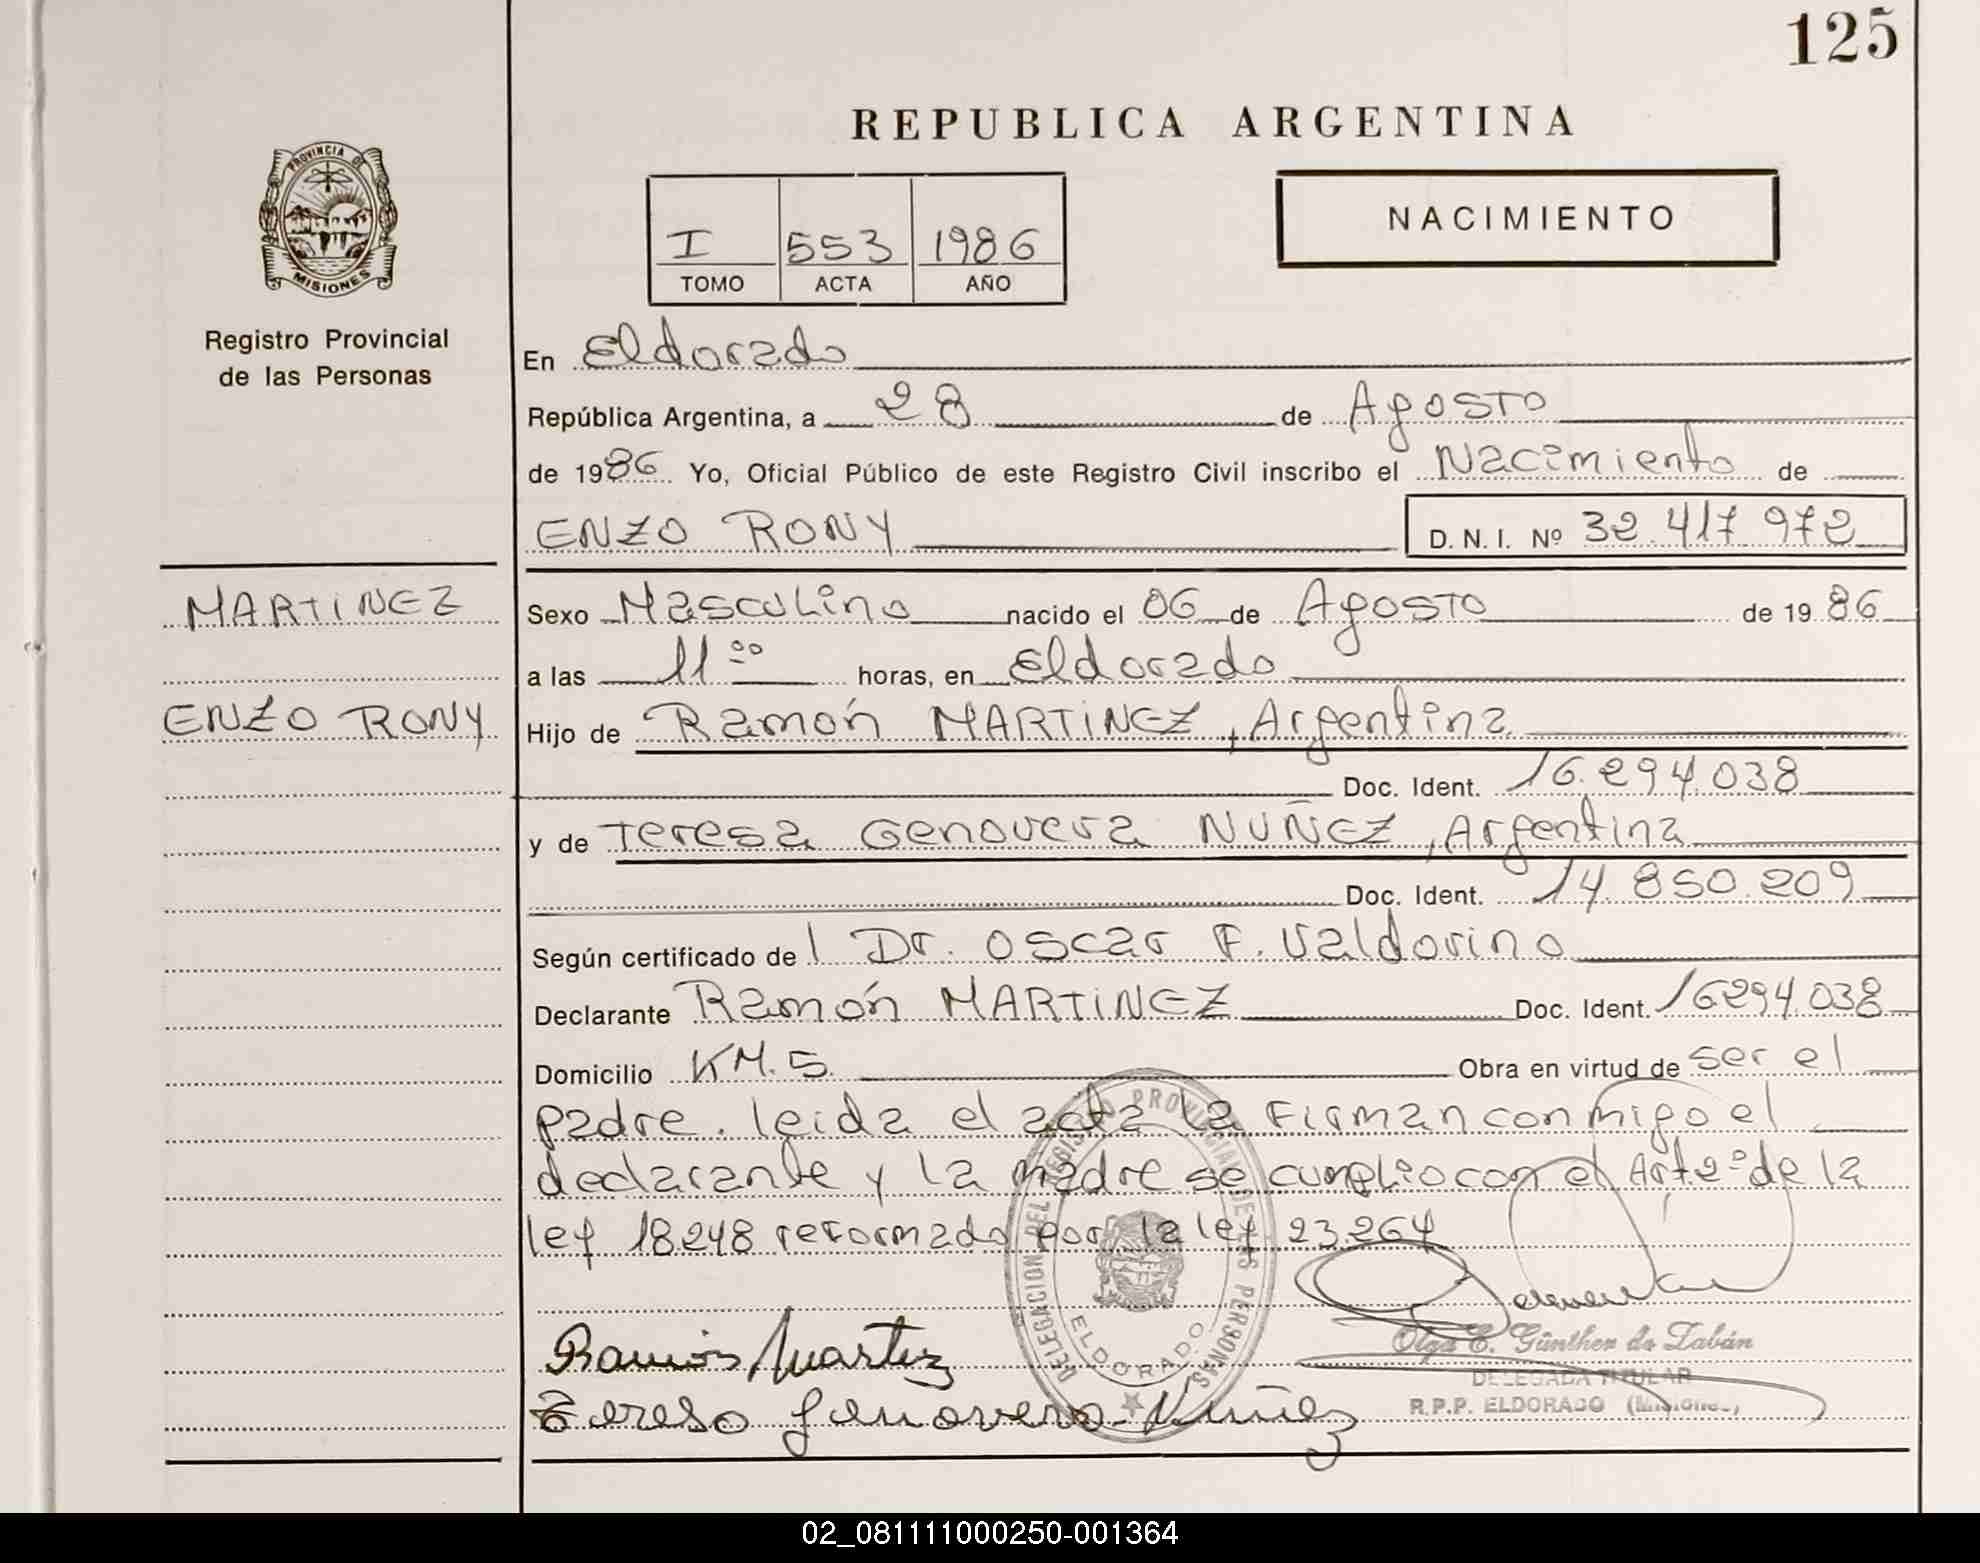 125
REPUBLICA ARGENTINA
PROVINCIA DE
MISIONES
Registro Provincial
de las Personas
I 553 1986
TOMO ACTA AÑO
NACIMIENTO
En Eldorado
República Argentina, a 28 de Agosto
de 1986 Yo, Oficial Público de este Registro Civil inscribo el Nacimiento de
ENZO RONY D. N. I. Nº 32.417 972
MARTINEZ
ENZO RONY
Sexo Masculino nacido el 06 de Agosto de 1986
a las 11 00 horas, en Eldorado
Hijo de Ramón MARTINEZ, Argentina
Doc. Ident. 16.294.038
y de Teresa Genovera NUÑEZ, Argentina
Doc. Ident. 14.850.209
Según certificado de l Dr. Oscar F. Valdovino
Declarante Ramón MARTINEZ Doc. Ident. 16294.038
Domicilio KM. 5 Obra en virtud de ser el
padre. leida el acta la Firman conmigo el
declarante y la madre se cumplio con el Art 2º de la
ley 18248 reformado por la ley 23.264
DELEGACION DEL REGISTRO PROVINCIAL DE LAS PERSONAS
ELDORADO
Ramón Martinez
Olga E. Günther de Zabán
DELEGADA TITULAR
R.P.P. ELDORADO (Misiones)
Tereso Genovera Nuñez
02_081111000250-001364